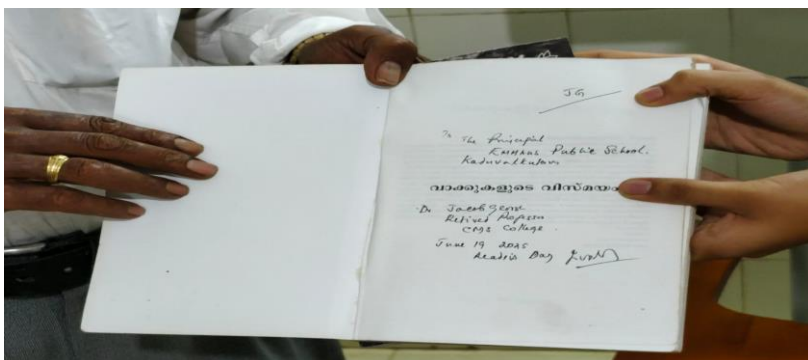 JG
To The Principal
EMMAUS Public School.
Kaduvakkulam
വാക്കുകളുടെ വിസ്മയം
Dr Jacob George
Retired Professor
CMS College.
June 19 2025
Reader's Day